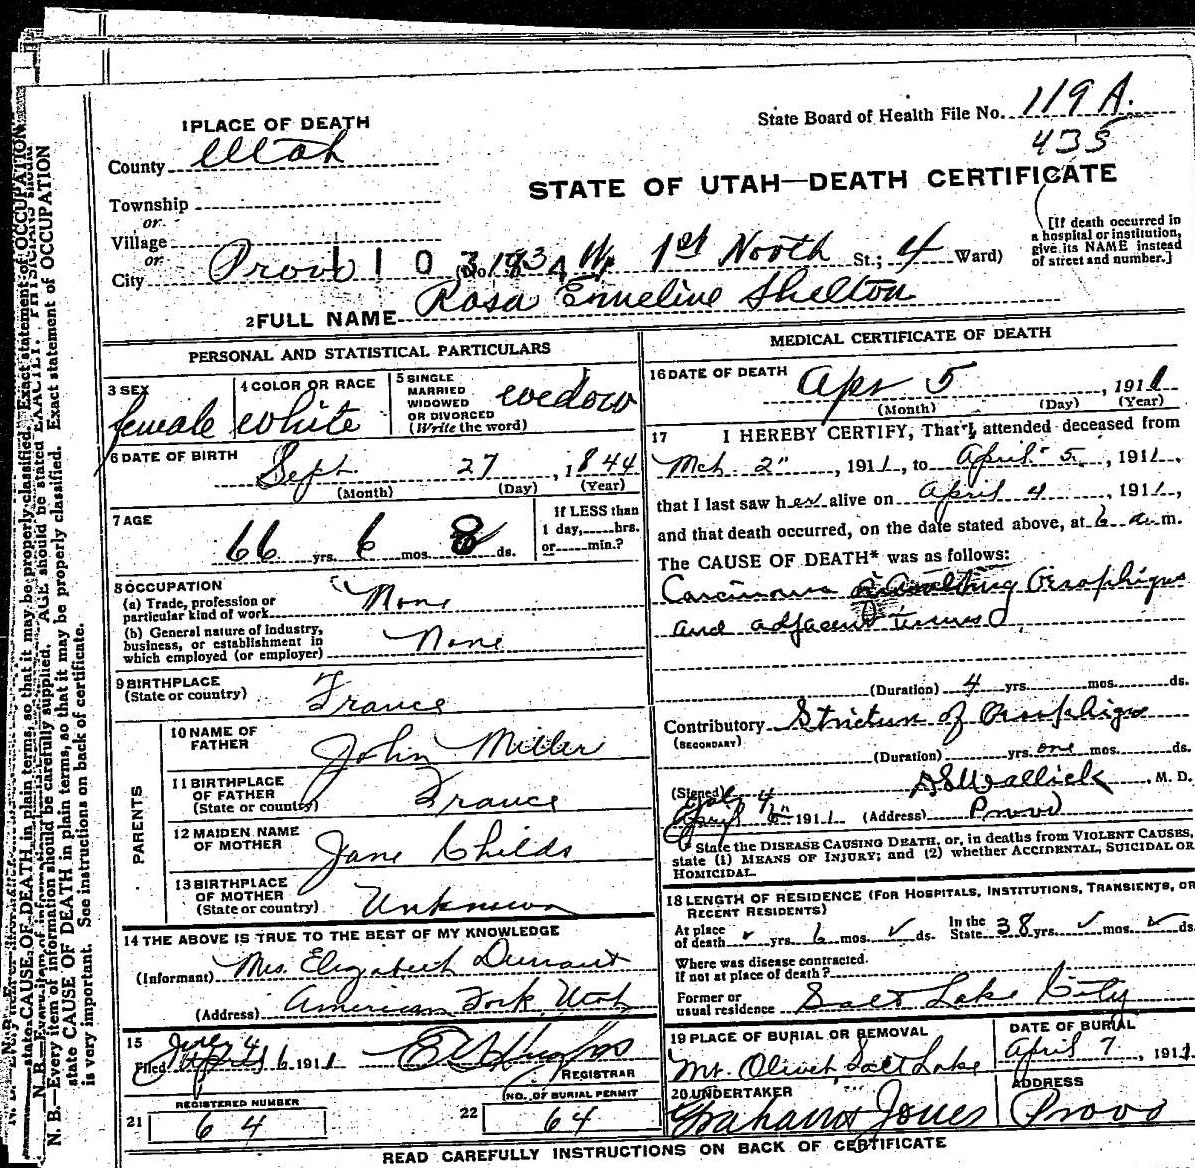 State Board of Health File No. 119 A.
435
1 PLACE OF DEATH
County Utah
STATE OF UTAH—DEATH CERTIFICATE
Township
or
Village
or
City Provo 1103 (No. 193 W. 1st North St.; 4 Ward)
[If death occurred in
a hospital or institution,
give its NAME instead
of street and number.]
2 FULL NAME Rosa Emeline Shelton
PERSONAL AND STATISTICAL PARTICULARS
3 SEX female
4 COLOR OR RACE white
5 SINGLE
MARRIED
WIDOWED
OR DIVORCED
(Write the word) widow
6 DATE OF BIRTH Sept 27, 1844
(Month) (Day) (Year)
7 AGE 66 yrs. 6 mos. 8 ds.
If LESS than
1 day, hrs.
or min.?
8 OCCUPATION
(a) Trade, profession or
particular kind of work None
(b) General nature of industry,
business, or establishment in
which employed (or employer) None
9 BIRTHPLACE
(State or country) France
PARENTS
10 NAME OF
FATHER John Miller
11 BIRTHPLACE
OF FATHER
(State or country) France
12 MAIDEN NAME
OF MOTHER Jane Childs
13 BIRTHPLACE
OF MOTHER
(State or country) Unknown
14 THE ABOVE IS TRUE TO THE BEST OF MY KNOWLEDGE
(Informant) Mrs. Elizabeth Durrant
(Address) American Fork, Utah
15
Filed April 6 1911
REGISTRAR
REGISTERED NUMBER
21 64
(NO. OF BURIAL PERMIT
22 64
MEDICAL CERTIFICATE OF DEATH
16 DATE OF DEATH Apr 5, 1911
(Month) (Day) (Year)
17 I HEREBY CERTIFY, That I attended deceased from
Mch. 2", 1911, to April 5, 1911,
that I last saw her alive on April 4, 1911,
and that death occurred, on the date stated above, at 6 a.m.
The CAUSE OF DEATH* was as follows:
Carcinoma involving Oesophigus
and adjacent tissues
(Duration) 4 yrs. mos. ds.
Contributory Stricture of Oesophigus
(SECONDARY)
(Duration) yrs. one mos. ds.
(Signed) A S Wallick, M. D.
April 6" 1911 (Address) Provo
State the DISEASE CAUSING DEATH, or, in deaths from VIOLENT CAUSES,
state (1) MEANS OF INJURY; and (2) whether ACCIDENTAL, SUICIDAL OR
HOMICIDAL.
18 LENGTH OF RESIDENCE (FOR HOSPITALS, INSTITUTIONS, TRANSIENTS, OR
RECENT RESIDENTS)
At place
of death yrs. 6 mos. ds. In the
State 38 yrs. mos. ds.
Where was disease contracted.
If not at place of death?
Former or
usual residence Salt Lake City
19 PLACE OF BURIAL OR REMOVAL
Mt. Olivet Salt Lake
DATE OF BURIAL
April 7, 1911
20 UNDERTAKER
Graham & Jones
ADDRESS
Provo
READ CAREFULLY INSTRUCTIONS ON BACK OF CERTIFICATE
N. B.—Every item of information should be carefully supplied. AGE should be stated EXACTLY. PHYSICIANS should
state CAUSE OF DEATH in plain terms, so that it may be properly classified. Exact statement of OCCUPATION
is very important. See instructions on back of certificate.